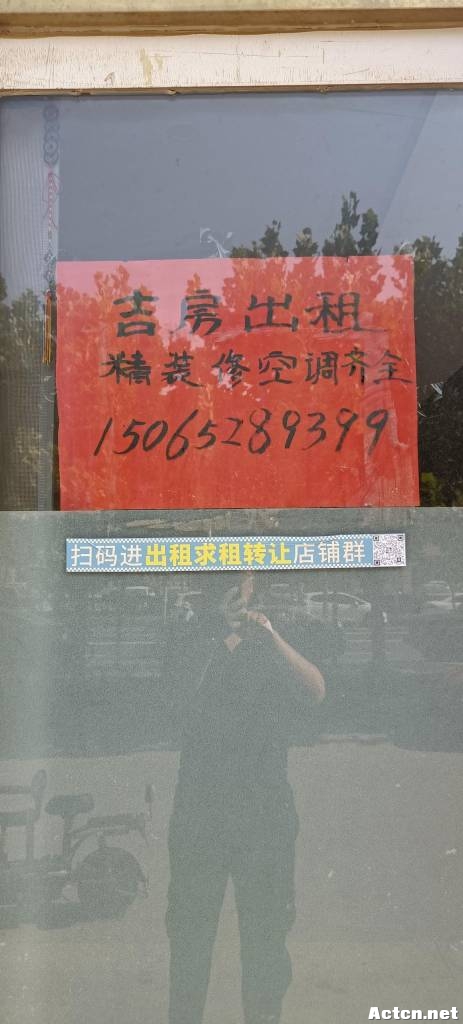 吉房出租
精装修空调齐全
15065289399
扫码进出租求租转让店铺群
Actcn.net